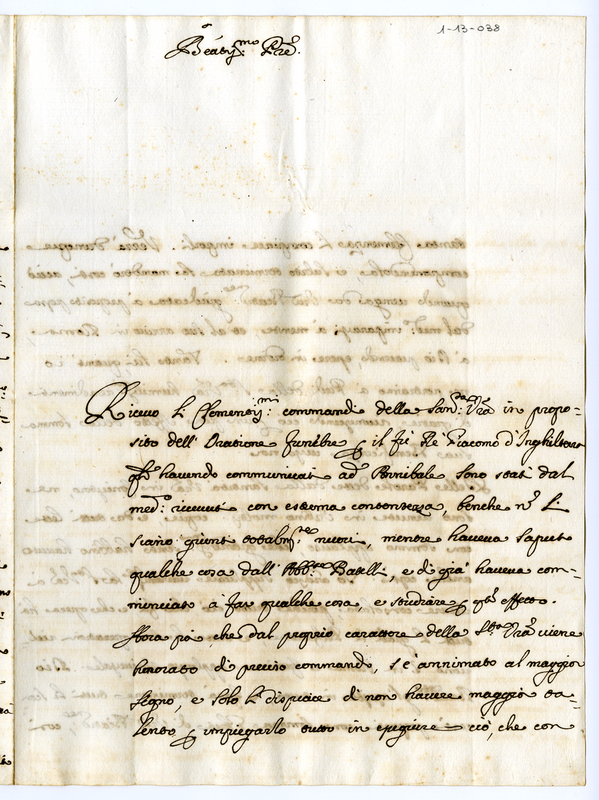 1-13-038
Beatis.mo P̃re.
Ricevo li Clementis.mi commandi della San.tà V̄ra in propo=
sito dell'Oratione funebre p il fù Rè Giacomo d'Inghilterra
havendo communicati ad Annibale sono stati dal
med.o ricevuti con estrema contentezza, benche nō li
siano giunti totalm.te nuovi, mentre haveva saputo
qualche cosa dall'Abb.te Batelli, e di già haveva com=
minciato à far qualche cosa, e studiare p effetto.
Hora poi che dal proprio carattere della S.tà V̄ra viene
honorato di preciso commando, s'è annimato al maggior
segno, e solo li dispiace di non havere maggior ta=
lento p impiegarlo tutto in eseguire ciò, che con